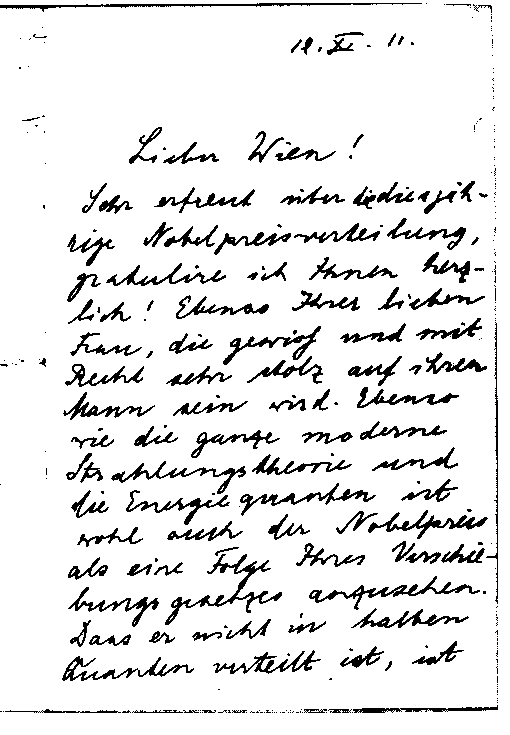 12. XI. 11.
Lieber Wien!
Sehr erfreut über die diesjäh-
rige Nobelpreisverteilung,
gratulire ich Ihnen herz-
lich! Ebenso Ihrer lieben
Frau, die gewiß und mit
Recht sehr stolz auf ihren
Mann sein wird. Ebenso
wie die ganze moderne
Strahlungstheorie und
die Energiequanten ist
wohl auch der Nobelpreis
als eine Folge Ihres Verschie-
bungsgesetzes anzusehen.
Dass er nicht in halben
Quanten verteilt ist, ist